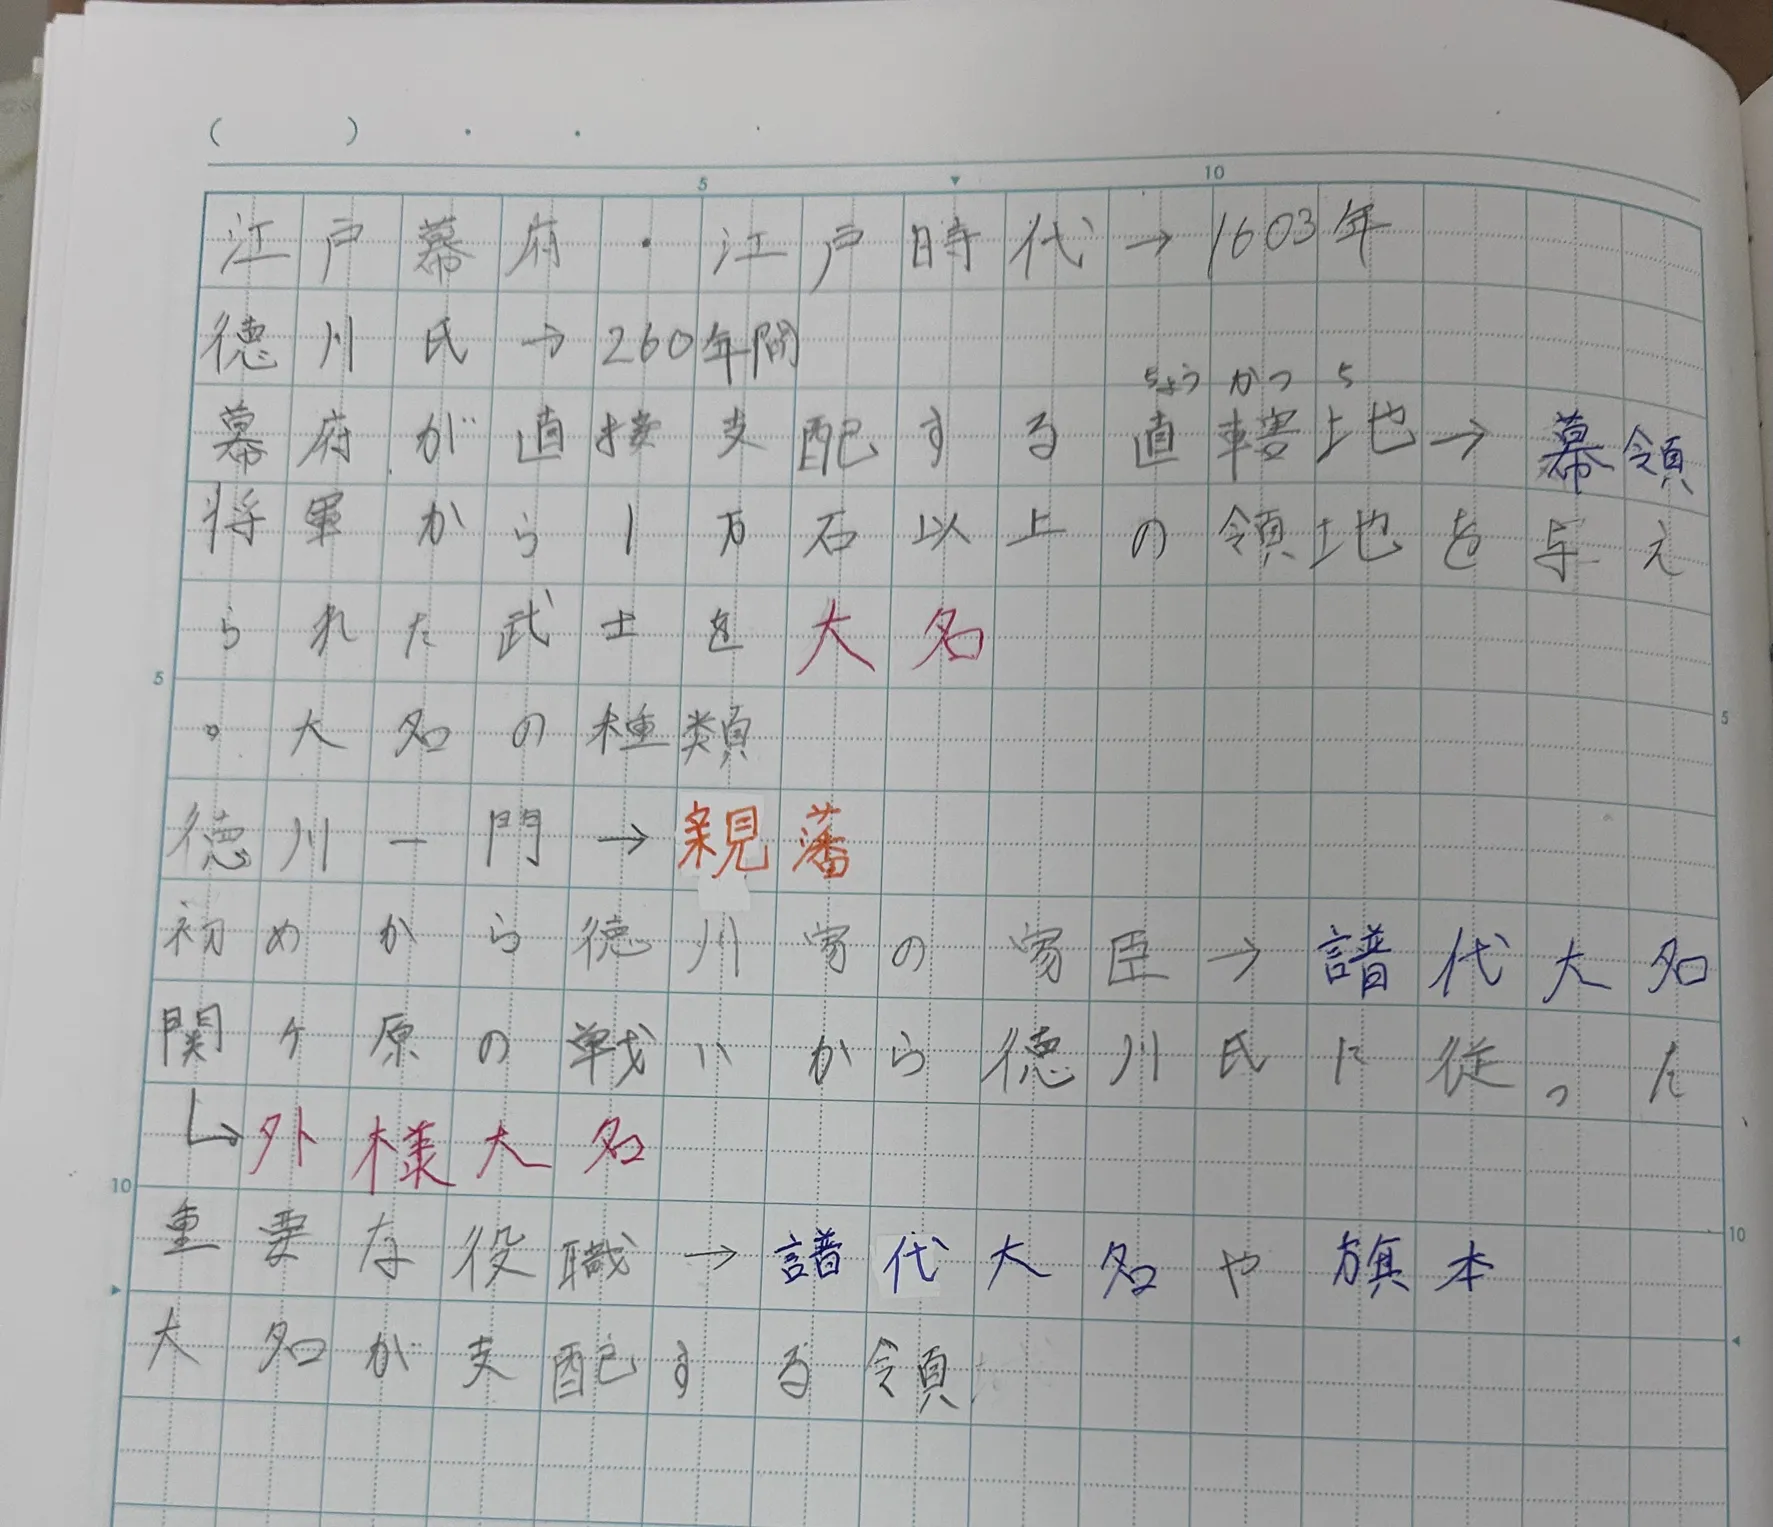 ( ) ・ ・
5 10
江戸幕府・江戸時代→1603年
徳川氏→260年間
ちょうかつち
幕府が直接支配する直轄地→幕領
将軍から1万石以上の領地を与え
られた武士を大名
5
。大名の種類
5
徳川一門→親藩
初めから徳川家の家臣→譜代大名
関ヶ原の戦いから徳川氏に従った
↳外様大名
10
重要な役職→譜代大名や旗本
10
大名が支配する領